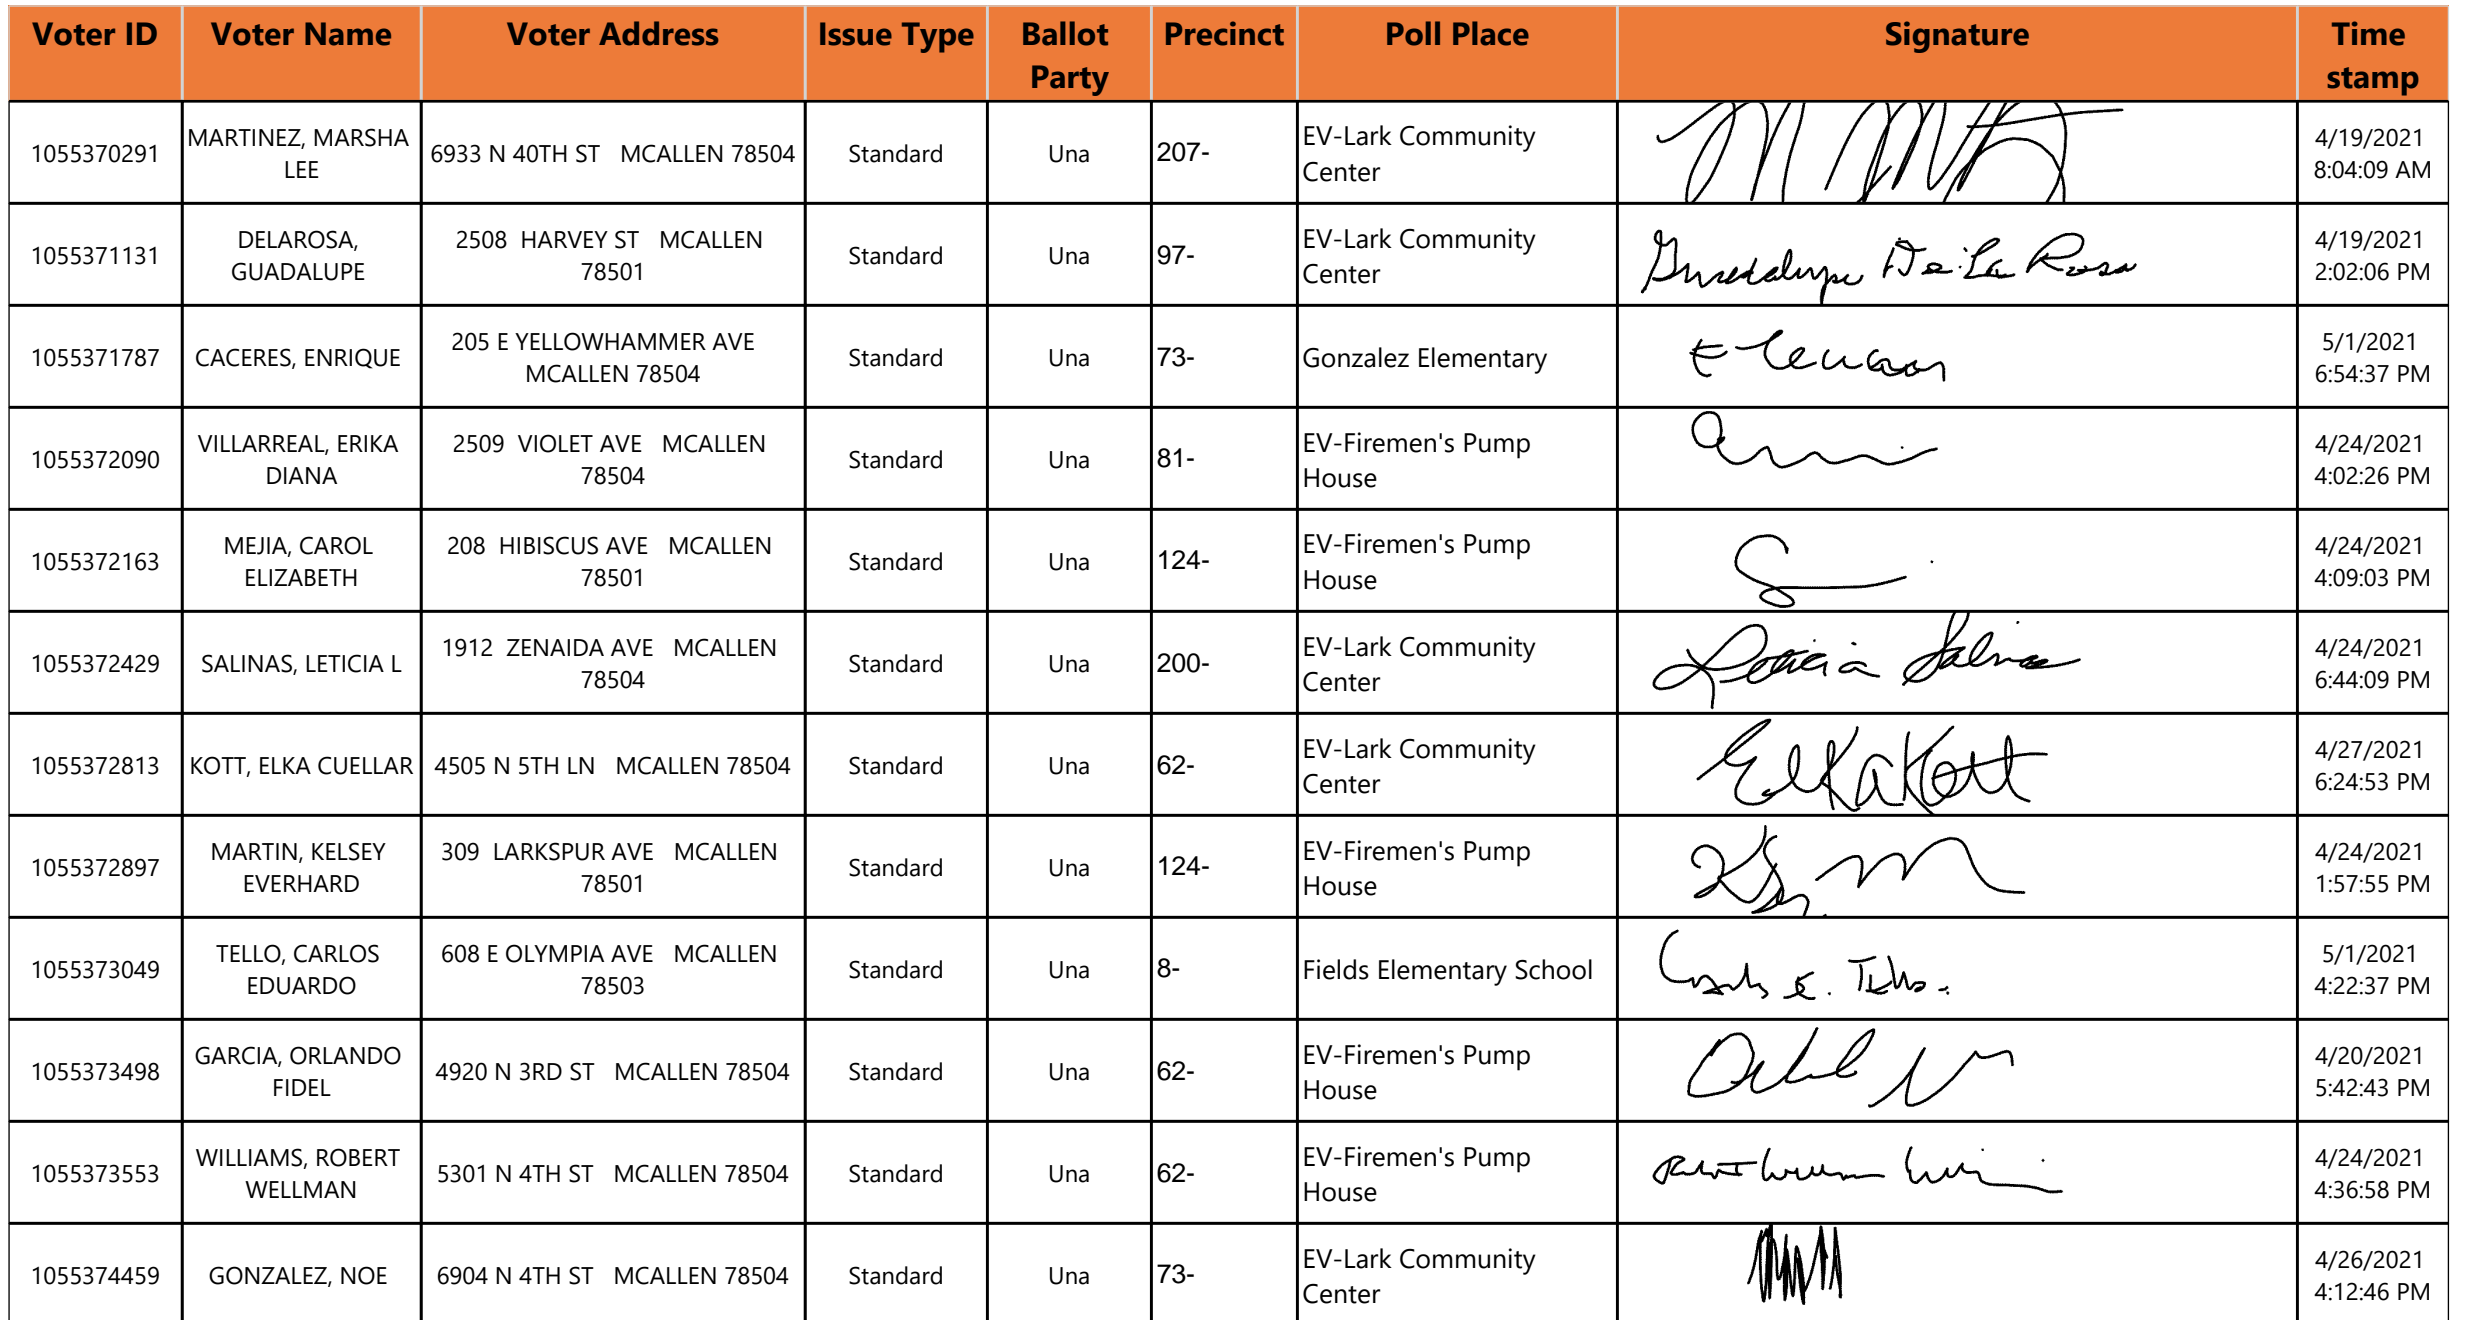 Voter ID Voter Name Voter Address Issue Type Ballot Party Precinct Poll Place Signature Time stamp
1055370291 MARTINEZ, MARSHA LEE 6933 N 40TH ST MCALLEN 78504 Standard Una 207- EV-Lark Community Center 4/19/2021 8:04:09 AM
1055371131 DELAROSA, GUADALUPE 2508 HARVEY ST MCALLEN 78501 Standard Una 97- EV-Lark Community Center Guadalupe De La Rosa 4/19/2021 2:02:06 PM
1055371787 CACERES, ENRIQUE 205 E YELLOWHAMMER AVE MCALLEN 78504 Standard Una 73- Gonzalez Elementary 5/1/2021 6:54:37 PM
1055372090 VILLARREAL, ERIKA DIANA 2509 VIOLET AVE MCALLEN 78504 Standard Una 81- EV-Firemen's Pump House 4/24/2021 4:02:26 PM
1055372163 MEJIA, CAROL ELIZABETH 208 HIBISCUS AVE MCALLEN 78501 Standard Una 124- EV-Firemen's Pump House 4/24/2021 4:09:03 PM
1055372429 SALINAS, LETICIA L 1912 ZENAIDA AVE MCALLEN 78504 Standard Una 200- EV-Lark Community Center Leticia Salinas 4/24/2021 6:44:09 PM
1055372813 KOTT, ELKA CUELLAR 4505 N 5TH LN MCALLEN 78504 Standard Una 62- EV-Lark Community Center Elka Kott 4/27/2021 6:24:53 PM
1055372897 MARTIN, KELSEY EVERHARD 309 LARKSPUR AVE MCALLEN 78501 Standard Una 124- EV-Firemen's Pump House 4/24/2021 1:57:55 PM
1055373049 TELLO, CARLOS EDUARDO 608 E OLYMPIA AVE MCALLEN 78503 Standard Una 8- Fields Elementary School Carlos E. Tello. 5/1/2021 4:22:37 PM
1055373498 GARCIA, ORLANDO FIDEL 4920 N 3RD ST MCALLEN 78504 Standard Una 62- EV-Firemen's Pump House 4/20/2021 5:42:43 PM
1055373553 WILLIAMS, ROBERT WELLMAN 5301 N 4TH ST MCALLEN 78504 Standard Una 62- EV-Firemen's Pump House 4/24/2021 4:36:58 PM
1055374459 GONZALEZ, NOE 6904 N 4TH ST MCALLEN 78504 Standard Una 73- EV-Lark Community Center 4/26/2021 4:12:46 PM